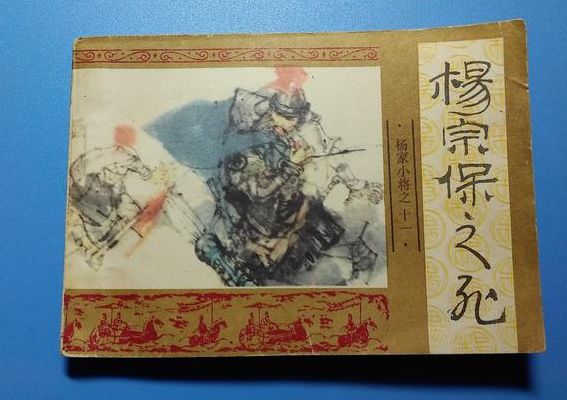 楊宗保之死
·杨家小将之十一·